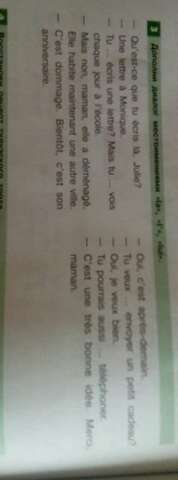 3 Дополни диалог местоимениями «la», «l'», «lui».
— Qu'est-ce que tu écris là, Julie?
— Une lettre à Monique.
— Tu ... écris une lettre? Mais tu ... vois
chaque jour à l'école.
— Mais non, maman, elle a déménagé.
Elle habite maintenant une autre ville.
— C'est dommage. Bientôt, c'est son
anniversaire.
— Oui, c'est après-demain.
— Tu veux ... envoyer un petit cadeau?
— Oui, je veux bien.
— Tu pourrais aussi ... téléphoner.
— C'est une très bonne idée. Merci,
maman.